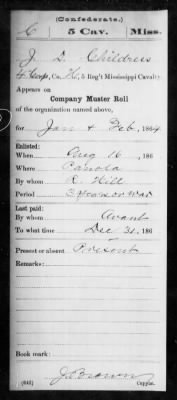 (Confederate.)
C 5 Cav. Miss.
J. D. Childress
4 Corp, Co. H, 5 Reg't Mississippi Cavalry
Appears on
Company Muster Roll
of the organization named above,
for Jan & Feb, 1864
Enlisted:
When Aug 16, 186
Where Panola
By whom R. Hill
Period 3 years or war
Last paid:
By whom Avant
To what time Dec 31, 186
Present or absent Present
Remarks:
Book mark:
J. Brown
(642) Copyist.